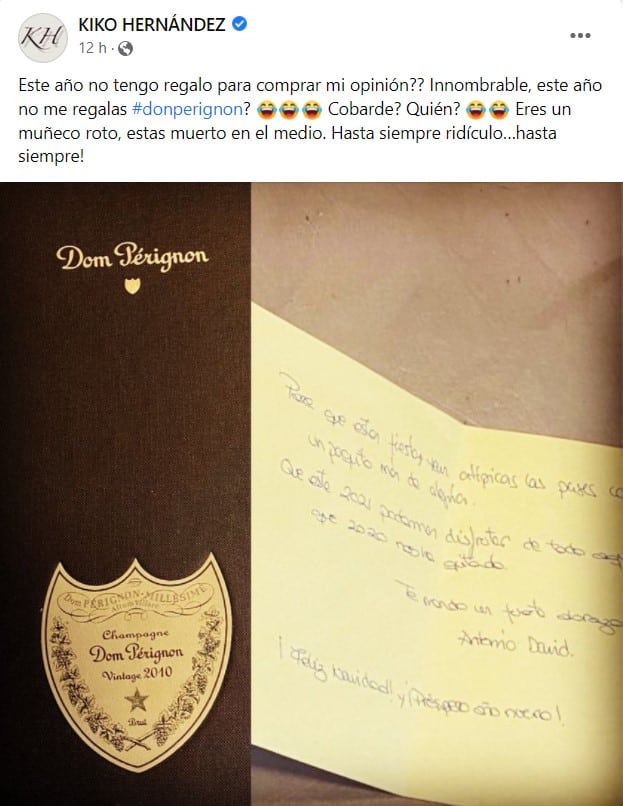 KH
KIKO HERNÁNDEZ
12 h ·
Este año no tengo regalo para comprar mi opinión?? Innombrable, este año
no me regalas #donperignon? 😂😂😂 Cobarde? Quién? 😂😂 Eres un
muñeco roto, estas muerto en el medio. Hasta siempre ridículo...hasta
siempre!
Dom Pérignon
DOM PÉRIGNON-MILLÉSIME
Altum Villare
Champagne
Dom Pérignon
Vintage 2010
Brut
Para que estas fiestas tan atípicas las pases
un poquito más de alegría.
Que este 2021 podamos disfrutar de todo
que 2020 nos ha quitado.
Te mando un fuerte abrazo
Antonio David.
¡Feliz Navidad! y ¡Próspero año nuevo!